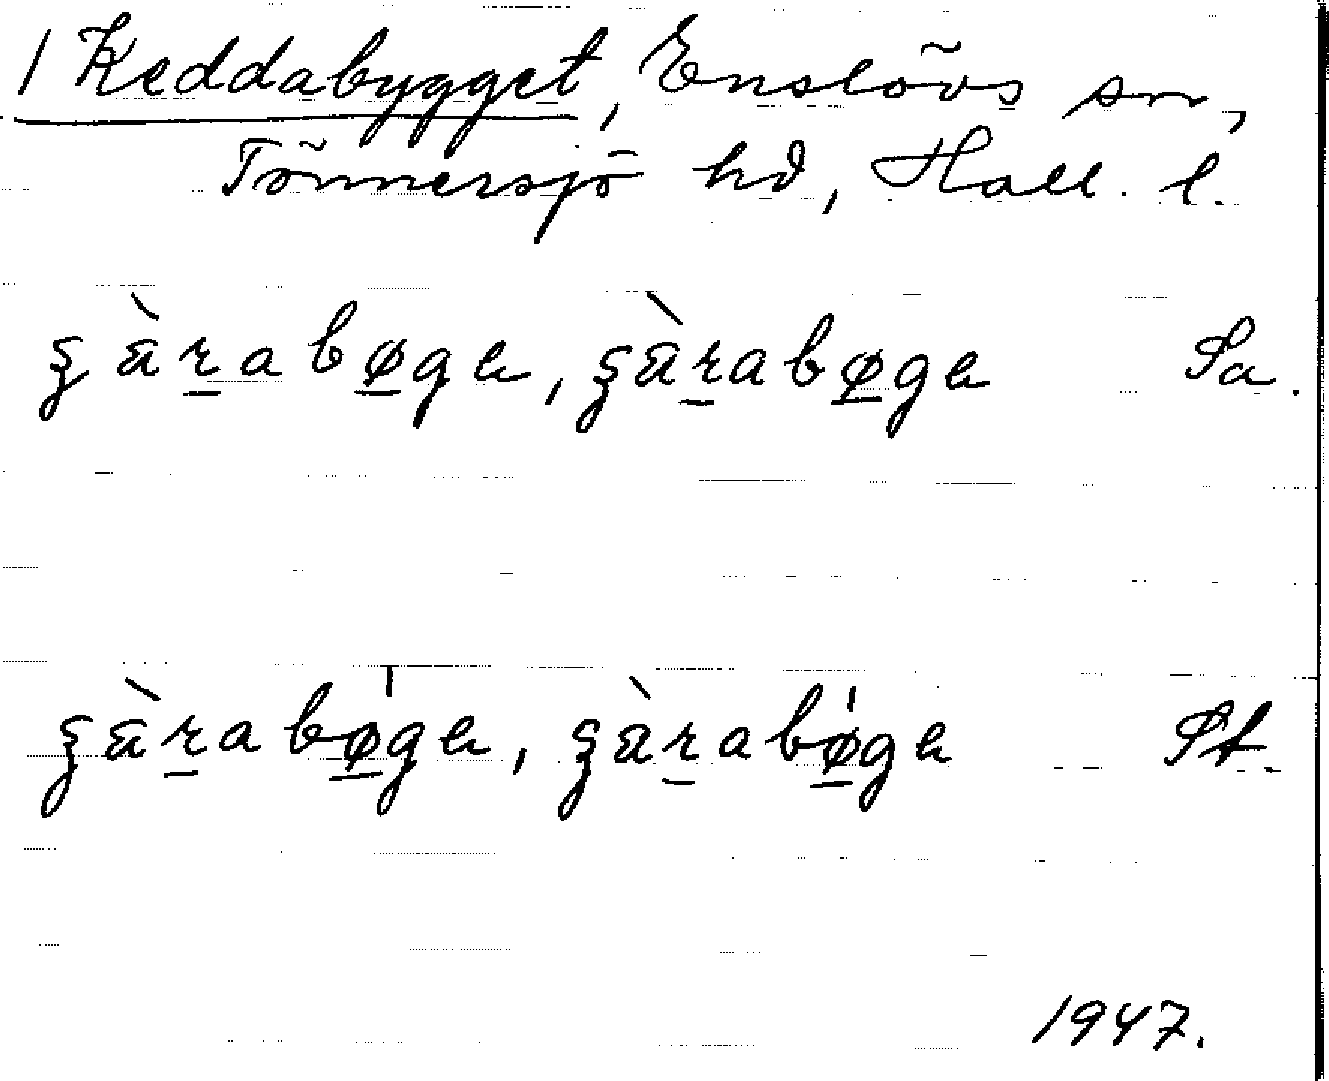 1 Keddabygget, Enslövs sn,
Tönnersjö hd, Hall. l.
ʒàrabøge, ʒàrabøge Sa.
ʒàrabǿge, ʒàrabǿge St.
1947.